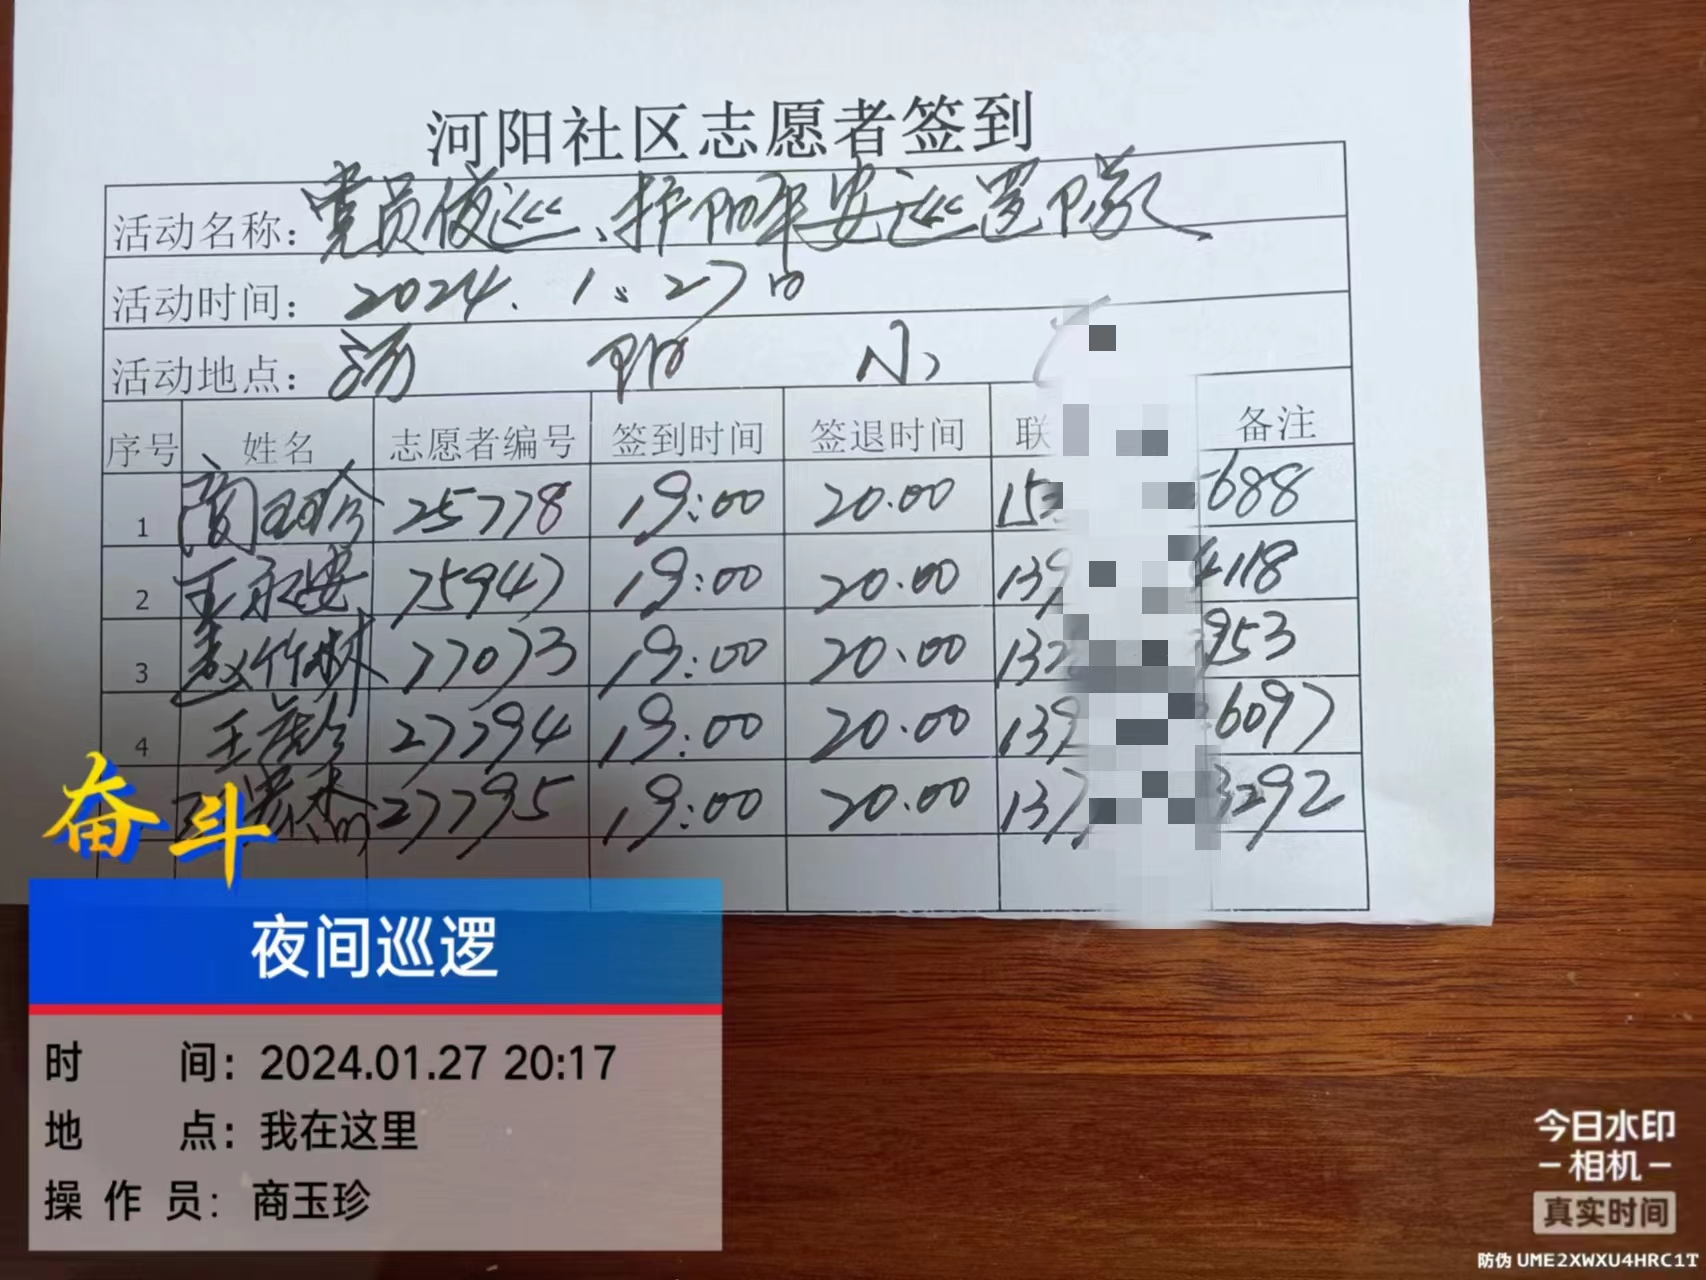 河阳社区志愿者签到
活动名称：党员夜巡、护阳平安巡逻队
活动时间：2024.1.27日
活动地点：河阳小
序号 姓名 志愿者编号 签到时间 签退时间 联 备注
1 商玉珍 25778 19:00 20.00 153 688
2 王永安 75947 19:00 20.00 139 4118
3 赵竹林 77073 19:00 20.00 132 953
4 19:00 20.00 139 6097
27795 19:00 20.00 137 3292
奋斗
夜间巡逻
时间：2024.01.27 20:17
地点：我在这里
操作员：商玉珍
今日水印
-相机-
真实时间
防伪 UME2XWXU4HRC1T